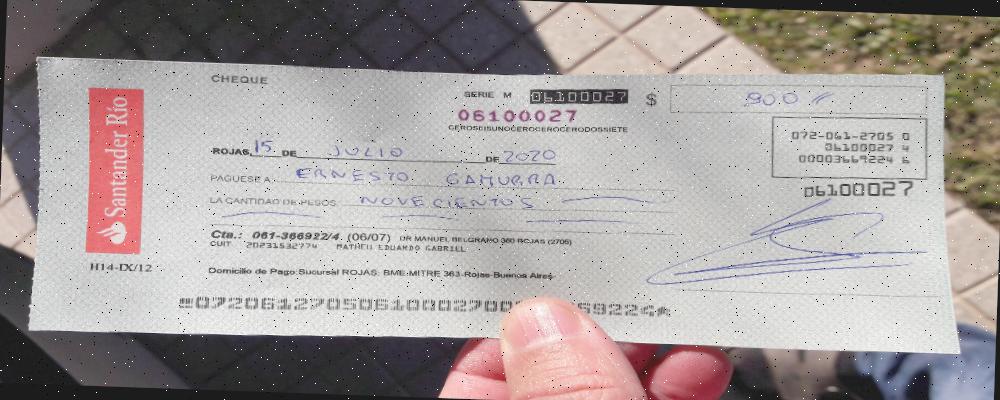 CHEQUE
Santander Río
SERIE M 06100027 $ 900
06100027
CEROSEISUNOCEROCEROCERODOSSIETE
072-061-2705 0
06100027 4
00003669224 6
06100027
ROJAS, 15 DE JULIO DE 2020
PAGUESE A ERNESTO GAMURRA
LA CANTIDAD DE PESOS NOVECIENTOS
Cta.: 061-366922/4. (06/07) DR MANUEL BELGRANO 360 ROJAS (2705)
CUIT 20231532774 MATHEU EDUARDO GABRIEL
H14-IX/12
Domicilio de Pago:Sucursal ROJAS: BME-MITRE 363-Rojas-Buenos Aires